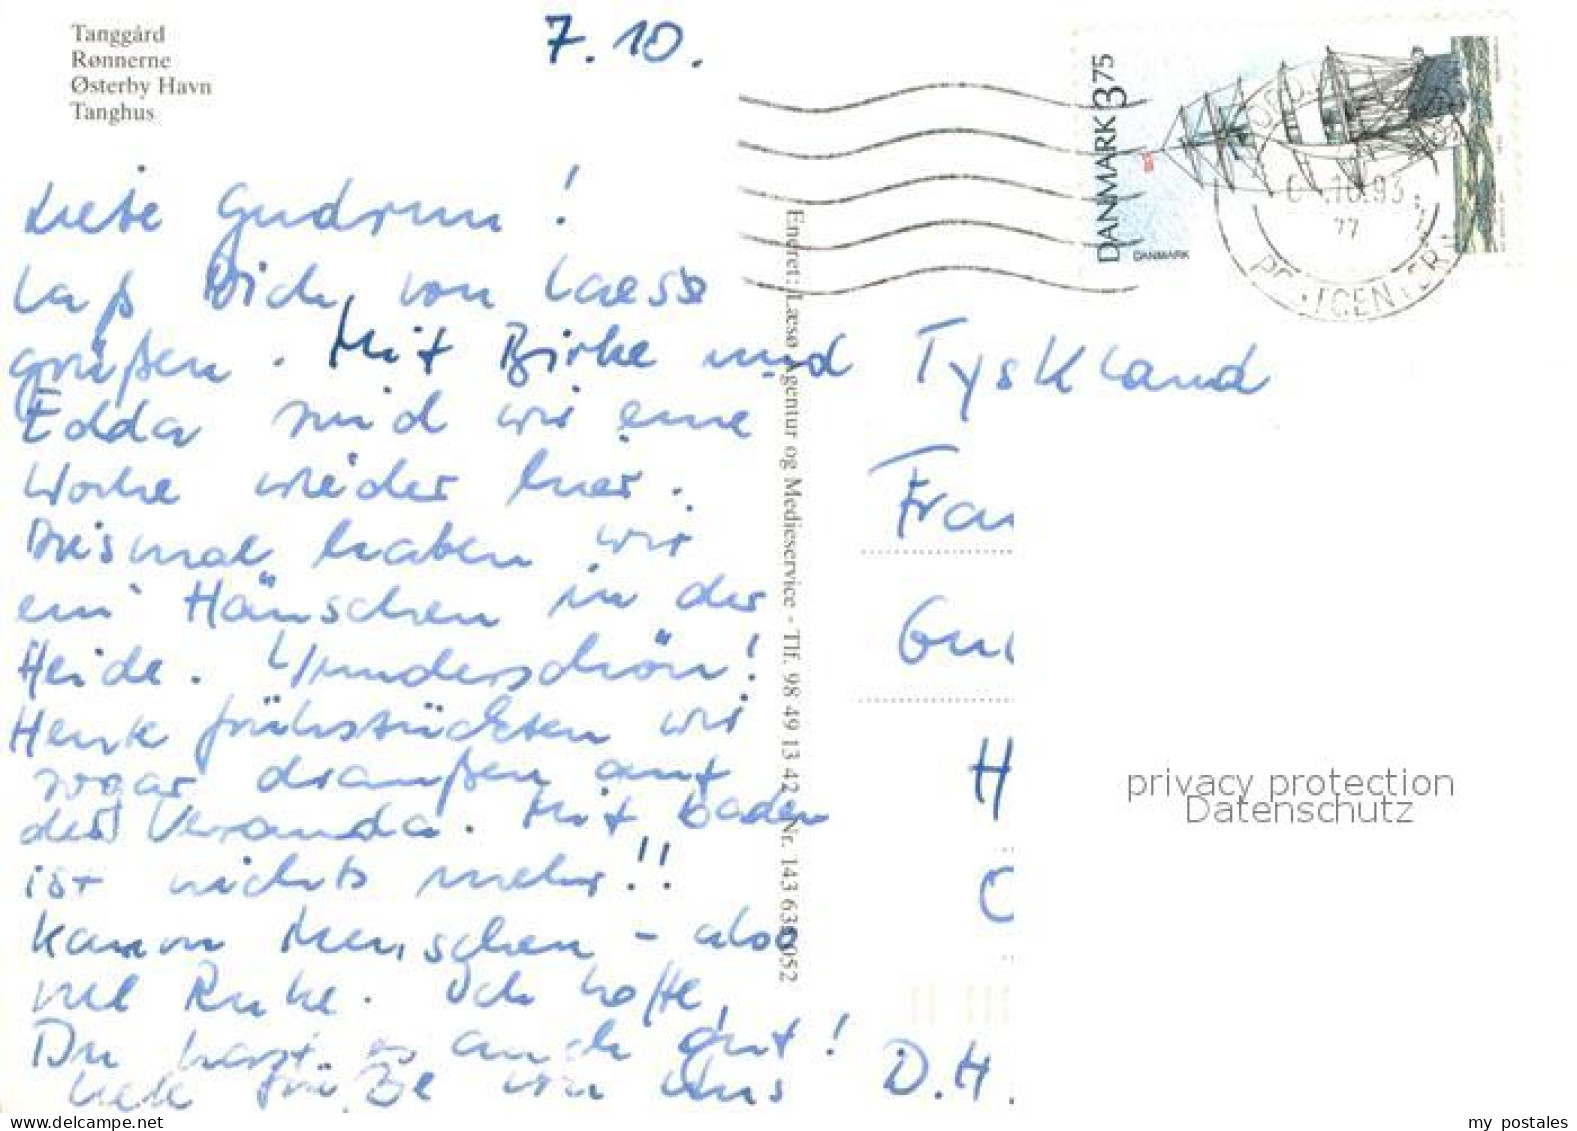 Tanggård
Rønnerne
Østerby Havn
Tanghus
7.10.
DANMARK 3.75
DANMARK
.10.93
77
POSTCENTER
Liebe Gudrun!
Laß Dich von Laesø
grüßen. Mit Birke und
Edda sind wir eine
Woche wieder hier.
Diesmal haben wir
ein Häuschen in der
Heide. Wunderschön!
Heute frühstückten wir
sogar draußen auf
der Veranda. Mit baden
ist nichts mehr!!
Kaum Menschen - also
viel Ruhe. Ich hoffe,
Du hast es auch gut!
Liebe Grüße von uns
D.H.
Eneret: Læsø Agentur og Medieservice - Tlf. 98 49 13 42 Nr. 143 638 052
Tyskland
Frau
Gu
H
C
privacy protection
Datenschutz
my postales